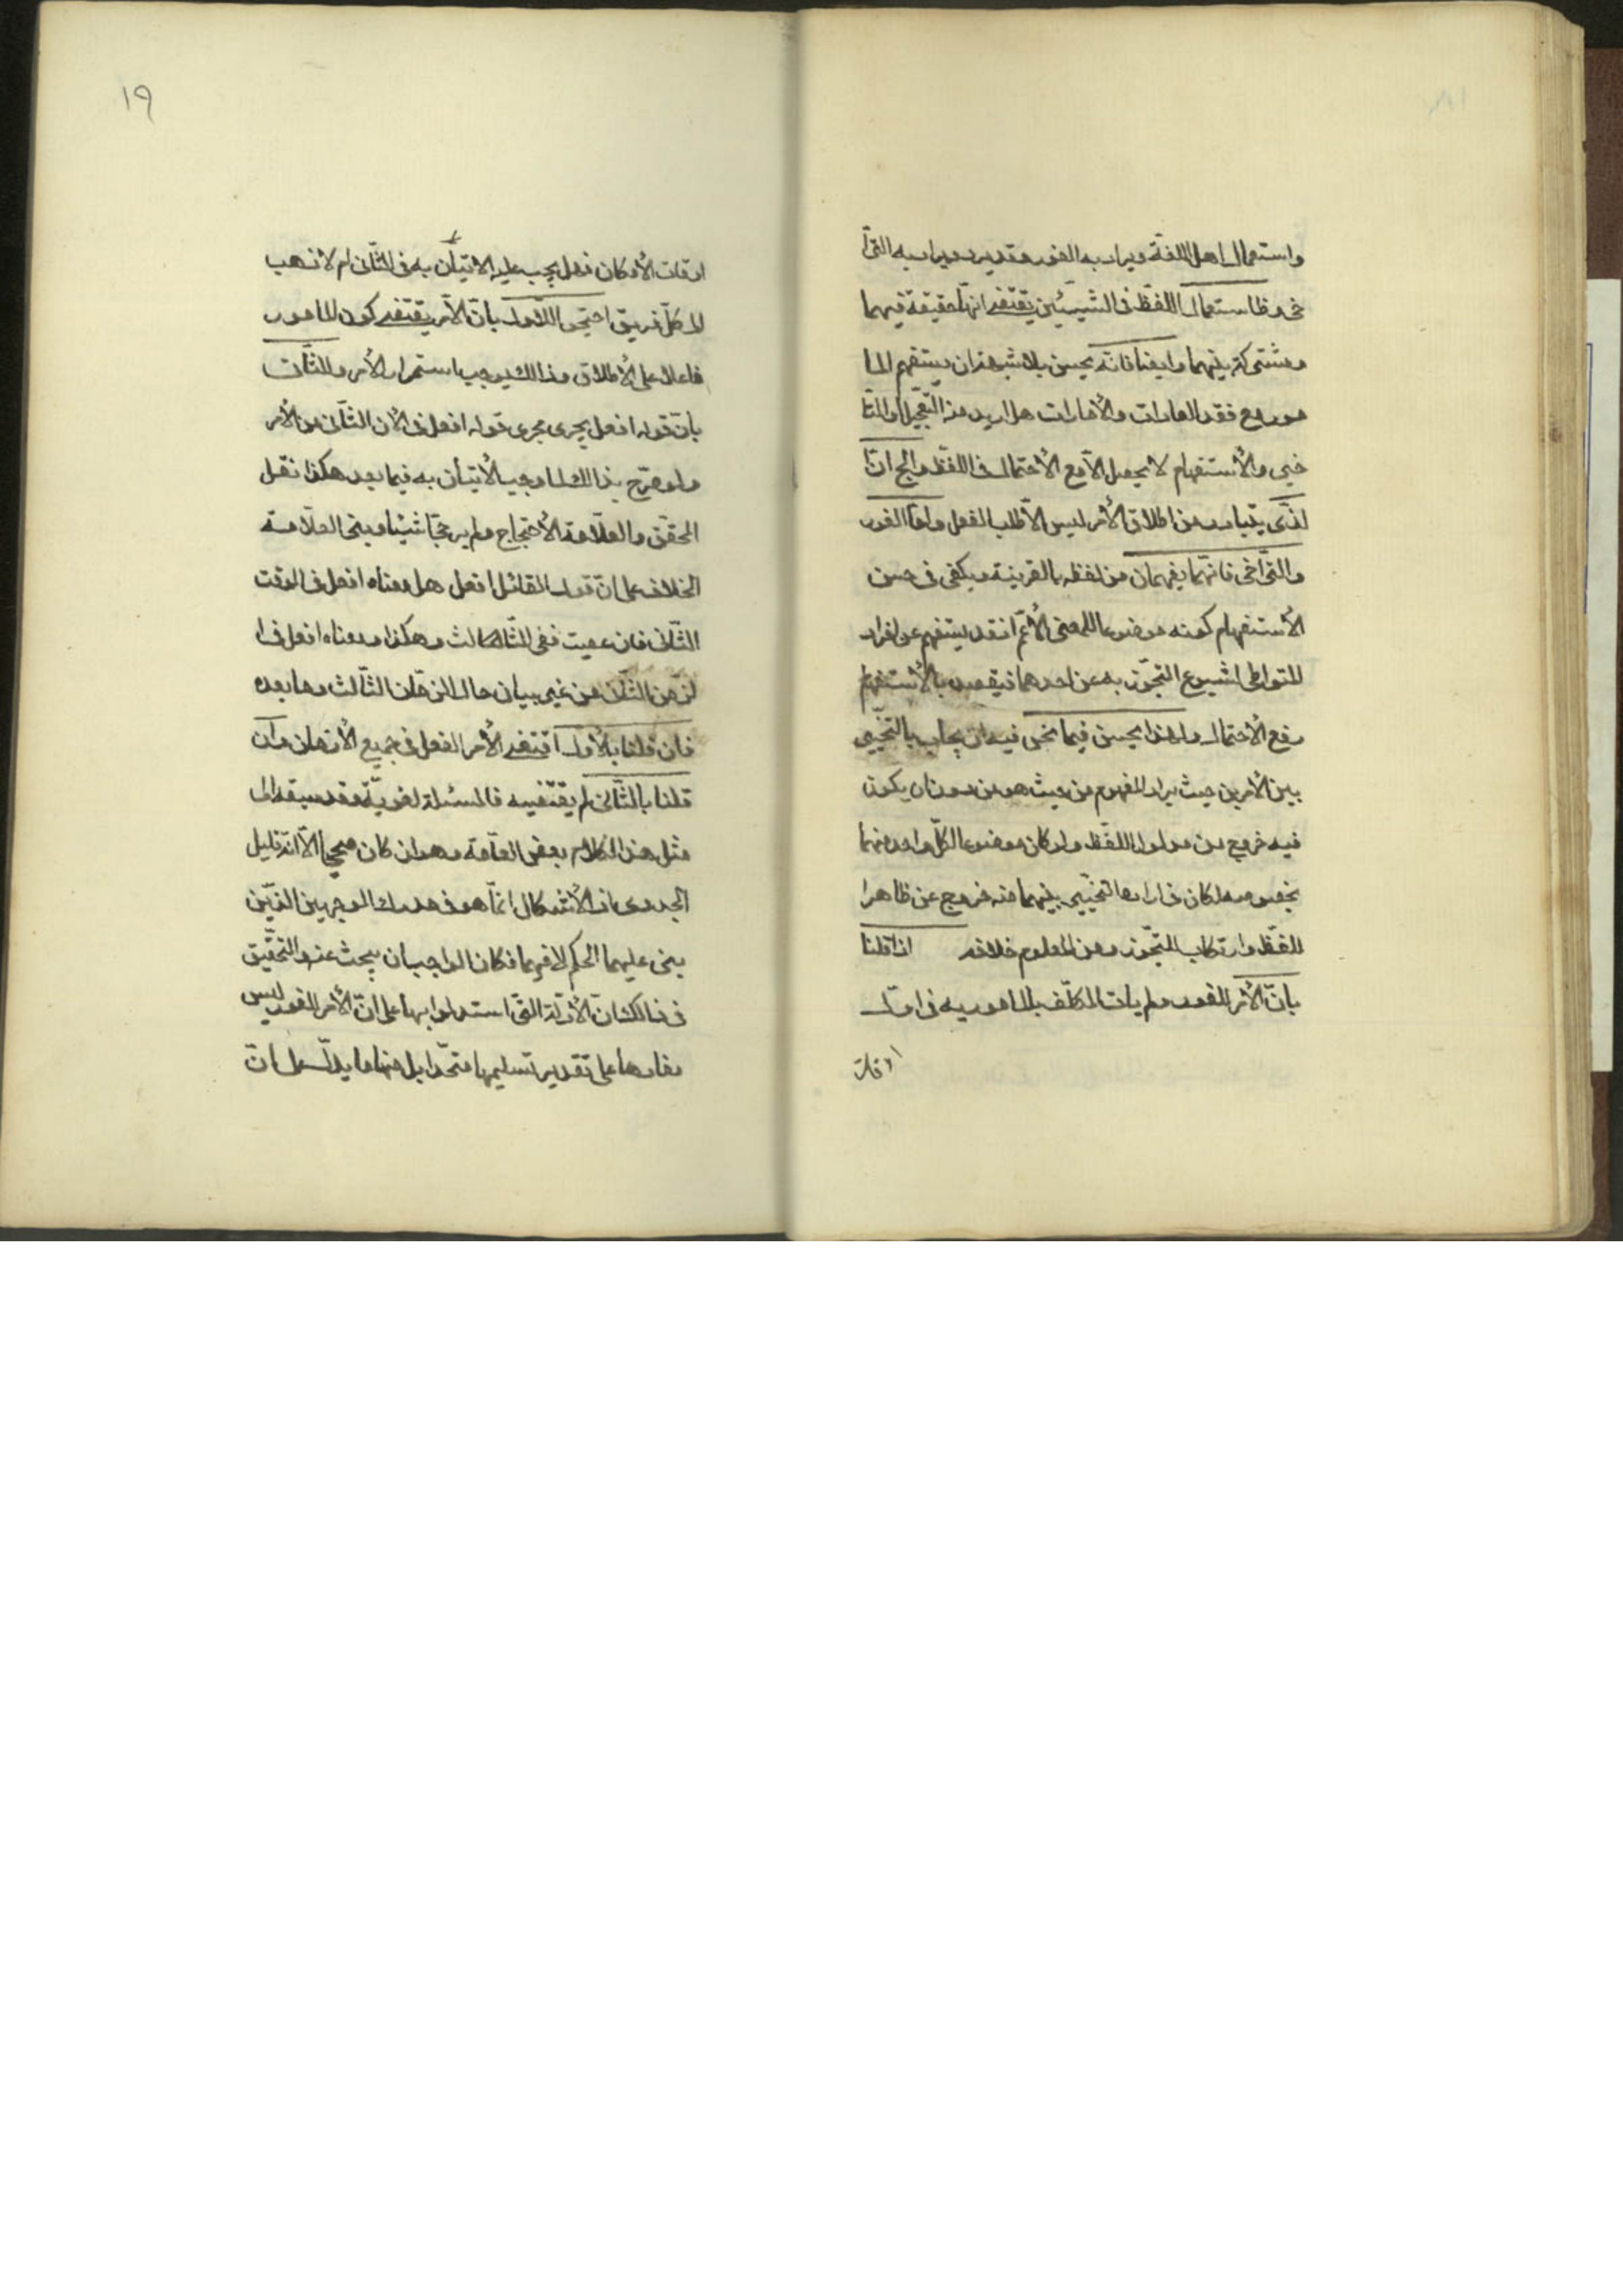 واستعمال اهل اللغة ويراد به الفور وقد يرد ويراد به الترا
خى وظا استعمال اللفظ فى الشيئين يقتضى انها حقيقة فيهما
ومشتركة بينهما وايضا فانه يحسن بلا شبهة ان يستفهم الما
مور مع فقد العادات والأمارات هل اريد منه التعجيل او التا
خير والأستفهام لا يحصل الا مع الأحتمال فى اللفظ والج انّ
لذى يتبادر من اطلاق الأمر ليس الا طلب الفعل وامّا الفور
والتراخى فانهما يفهمان من لفظه بالقرينة ويكفى فى حسن
الأستفهام كونه موضوعا للمعنى الأعمّ اذ قد يستفهم عن افراد
المتواطى لشيوع التجوّز به عن احدهما فيقصد بالأستفهام
رفع الأحتمال ولهذا يحسن فيما نحن فيه ان يجاب بالتخيير
بين الأمرين حيث يراد المفهوم من حيث هو من دون ان يكون
فيه خروج من مدلول اللفظ ولو كان موضوعا لكلّ واحد منهما
بخصوصه لكان فى ارادة التخيير بينهما منه خروج عن ظاهر ا
للفظ وارتكاب للتجوّز ومن المعلوم خلافه اذا قلنا
بانّ الأمر للفور ولم يات المكلّف بالمامور به فى اوّل
اوقات
١٩
اوقات الأمكان فهل يجب عليه الاتيان به فى الثانى ام لا ذهب
الى كلّ فريق احتجوا للاول بانّ الأمر يقتضى كون المامور
فاعلا على الأطلاق وذالك يوجب استمرار الأمر وللثانى
بانّ قوله افعل يجرى مجرى قوله افعل فى الأن الثانى من الأمر
ولو صرّح بذالك لما وجب الأتيان به فيما بعد هكذا نقل
المحقق والعلامة الأحتجاج ولم يرجحا شيئا وبنى العلامة
الخلاف على انّ قول القائل افعل هل معناه افعل فى الوقت
الثانى فان عصيت ففى الثالث وهكذا او معناه افعل فى ا
لزمن الثانى من غير بيان حال الزمان الثالث وما بعده
فان قلنا بالأول اقتضى الأمر الفعل فى جميع الأزمان وان
قلنا بالثانى لم يقتضيه فالمسئلة لغوية وقد سبقه الى
مثل هذا الكلام بعض العامة وهو ان كان صحيحا الّا انه قليل
الجدوى اذ الأشكال انما هو فى مدرك الوجهين الذين
بنى عليهما الحكم لا فيهما فكان الواجب ان يبحث عنه والتحقيق
فى ذالك انّ الأدلة التى استدلوا بها على انّ الأمر للفور ليس
مفادها على تقدير تسليمها متحدا بل منها ما يدلّ على انّ